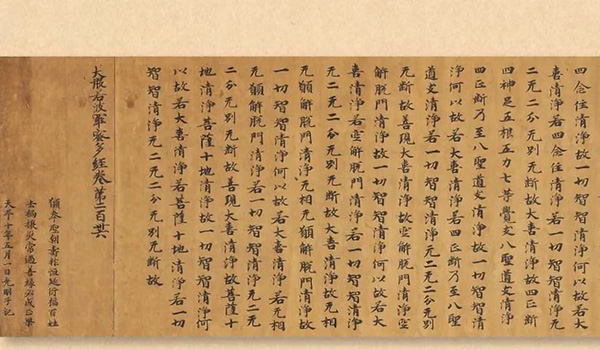 四念住清淨故一切智智清淨何以故若大
喜清淨若四念住清淨若一切智智清淨无
二无二分无別无斷故大喜清淨故四正斷
四神足五根五力七等覺支八聖道支清淨
四正斷乃至八聖道支清淨故一切智智清
淨何以故若大喜清淨若四正斷乃至八聖
道支清淨若一切智智清淨无二无二分无別
无斷故善現大喜清淨故空解脫門清淨空
解脫門清淨故一切智智清淨何以故若大
喜清淨若空解脫門清淨若一切智智清淨
无二无二分无別无斷故大喜清淨故无相
无願解脫門清淨无相无願解脫門清淨故
一切智智清淨何以故若大喜清淨若无相
无願解脫門清淨若一切智智清淨无二无
二分无別无斷故善現大喜清淨故菩薩十
地清淨菩薩十地清淨故一切智智清淨何
以故若大喜清淨若菩薩十地清淨若一切
智智清淨无二无二分无別无斷故
大般若波羅蜜多經卷第二百
願奉聖朝壽祚恒延行福百姓
士 禳災常遇善緣必成正果
天平十年五月一日光明子記